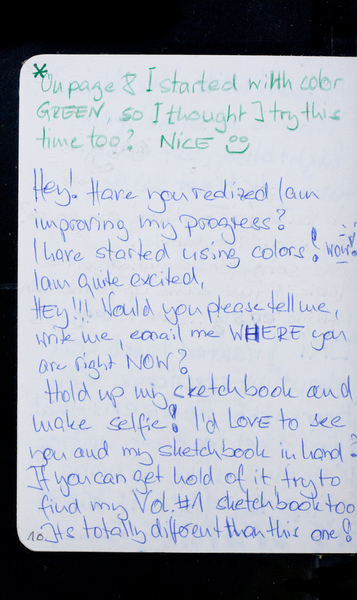 * On page 8 I started with color
GREEN, so I thought I try this
time too? NiCE
Hey! Have you realized I am
improving my progress?
I have started using colors! wow!
I am quite excited,
HEY!!! Would you please tell me,
write me, email me WHERE you
are right NOW?
Hold up my sketchbook and
make selfie! I'd LOVE to see
you and my sketchbook in hand?
If you can get hold of it try to
find my Vol.#1 sketchbook too
10 Its totally different than this one!